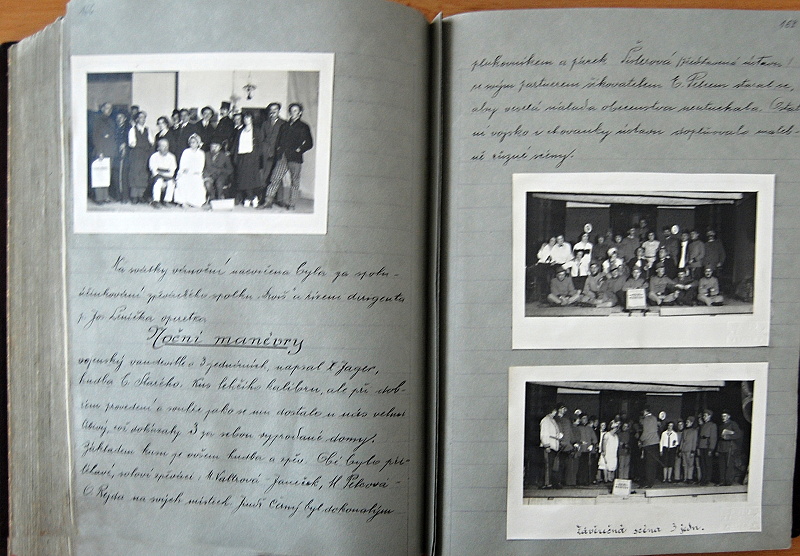 Na svátky vánoční nacvičena byla za spolu-
účinkování pěveckého spolku a řízení dirigenta
p. Jos. Linička opereta
Noční manévry
vojenský vaudeville o 3 jednáních, napsal Jager,
hudba E. Starého. Kus lehčího kalibru, ale při dob-
rém provedení a souhře jako se mu dostalo u nás velmi
líbivý, což dokázaly 3 za sebou vyprodané domy.
Základem kusu je ovšem hudba a zpěv. Obé bylo při-
sóloví zpěváci: Valtrová - Janeček, M. Petrová -
O. Rejda na svých místech. Černý byl dokonalým
plukovníkem a párek Šislerová (ředitelka ústavu)
se svým partnerem šikovatelem E. Petrem staral se,
aby veselá nálada obecenstva neutuchala. Ostat-
ní vojsko a chovanky ústavu doplňovalo maleb-
ně různé scény.
Závěrečná scéna 3 jedn.